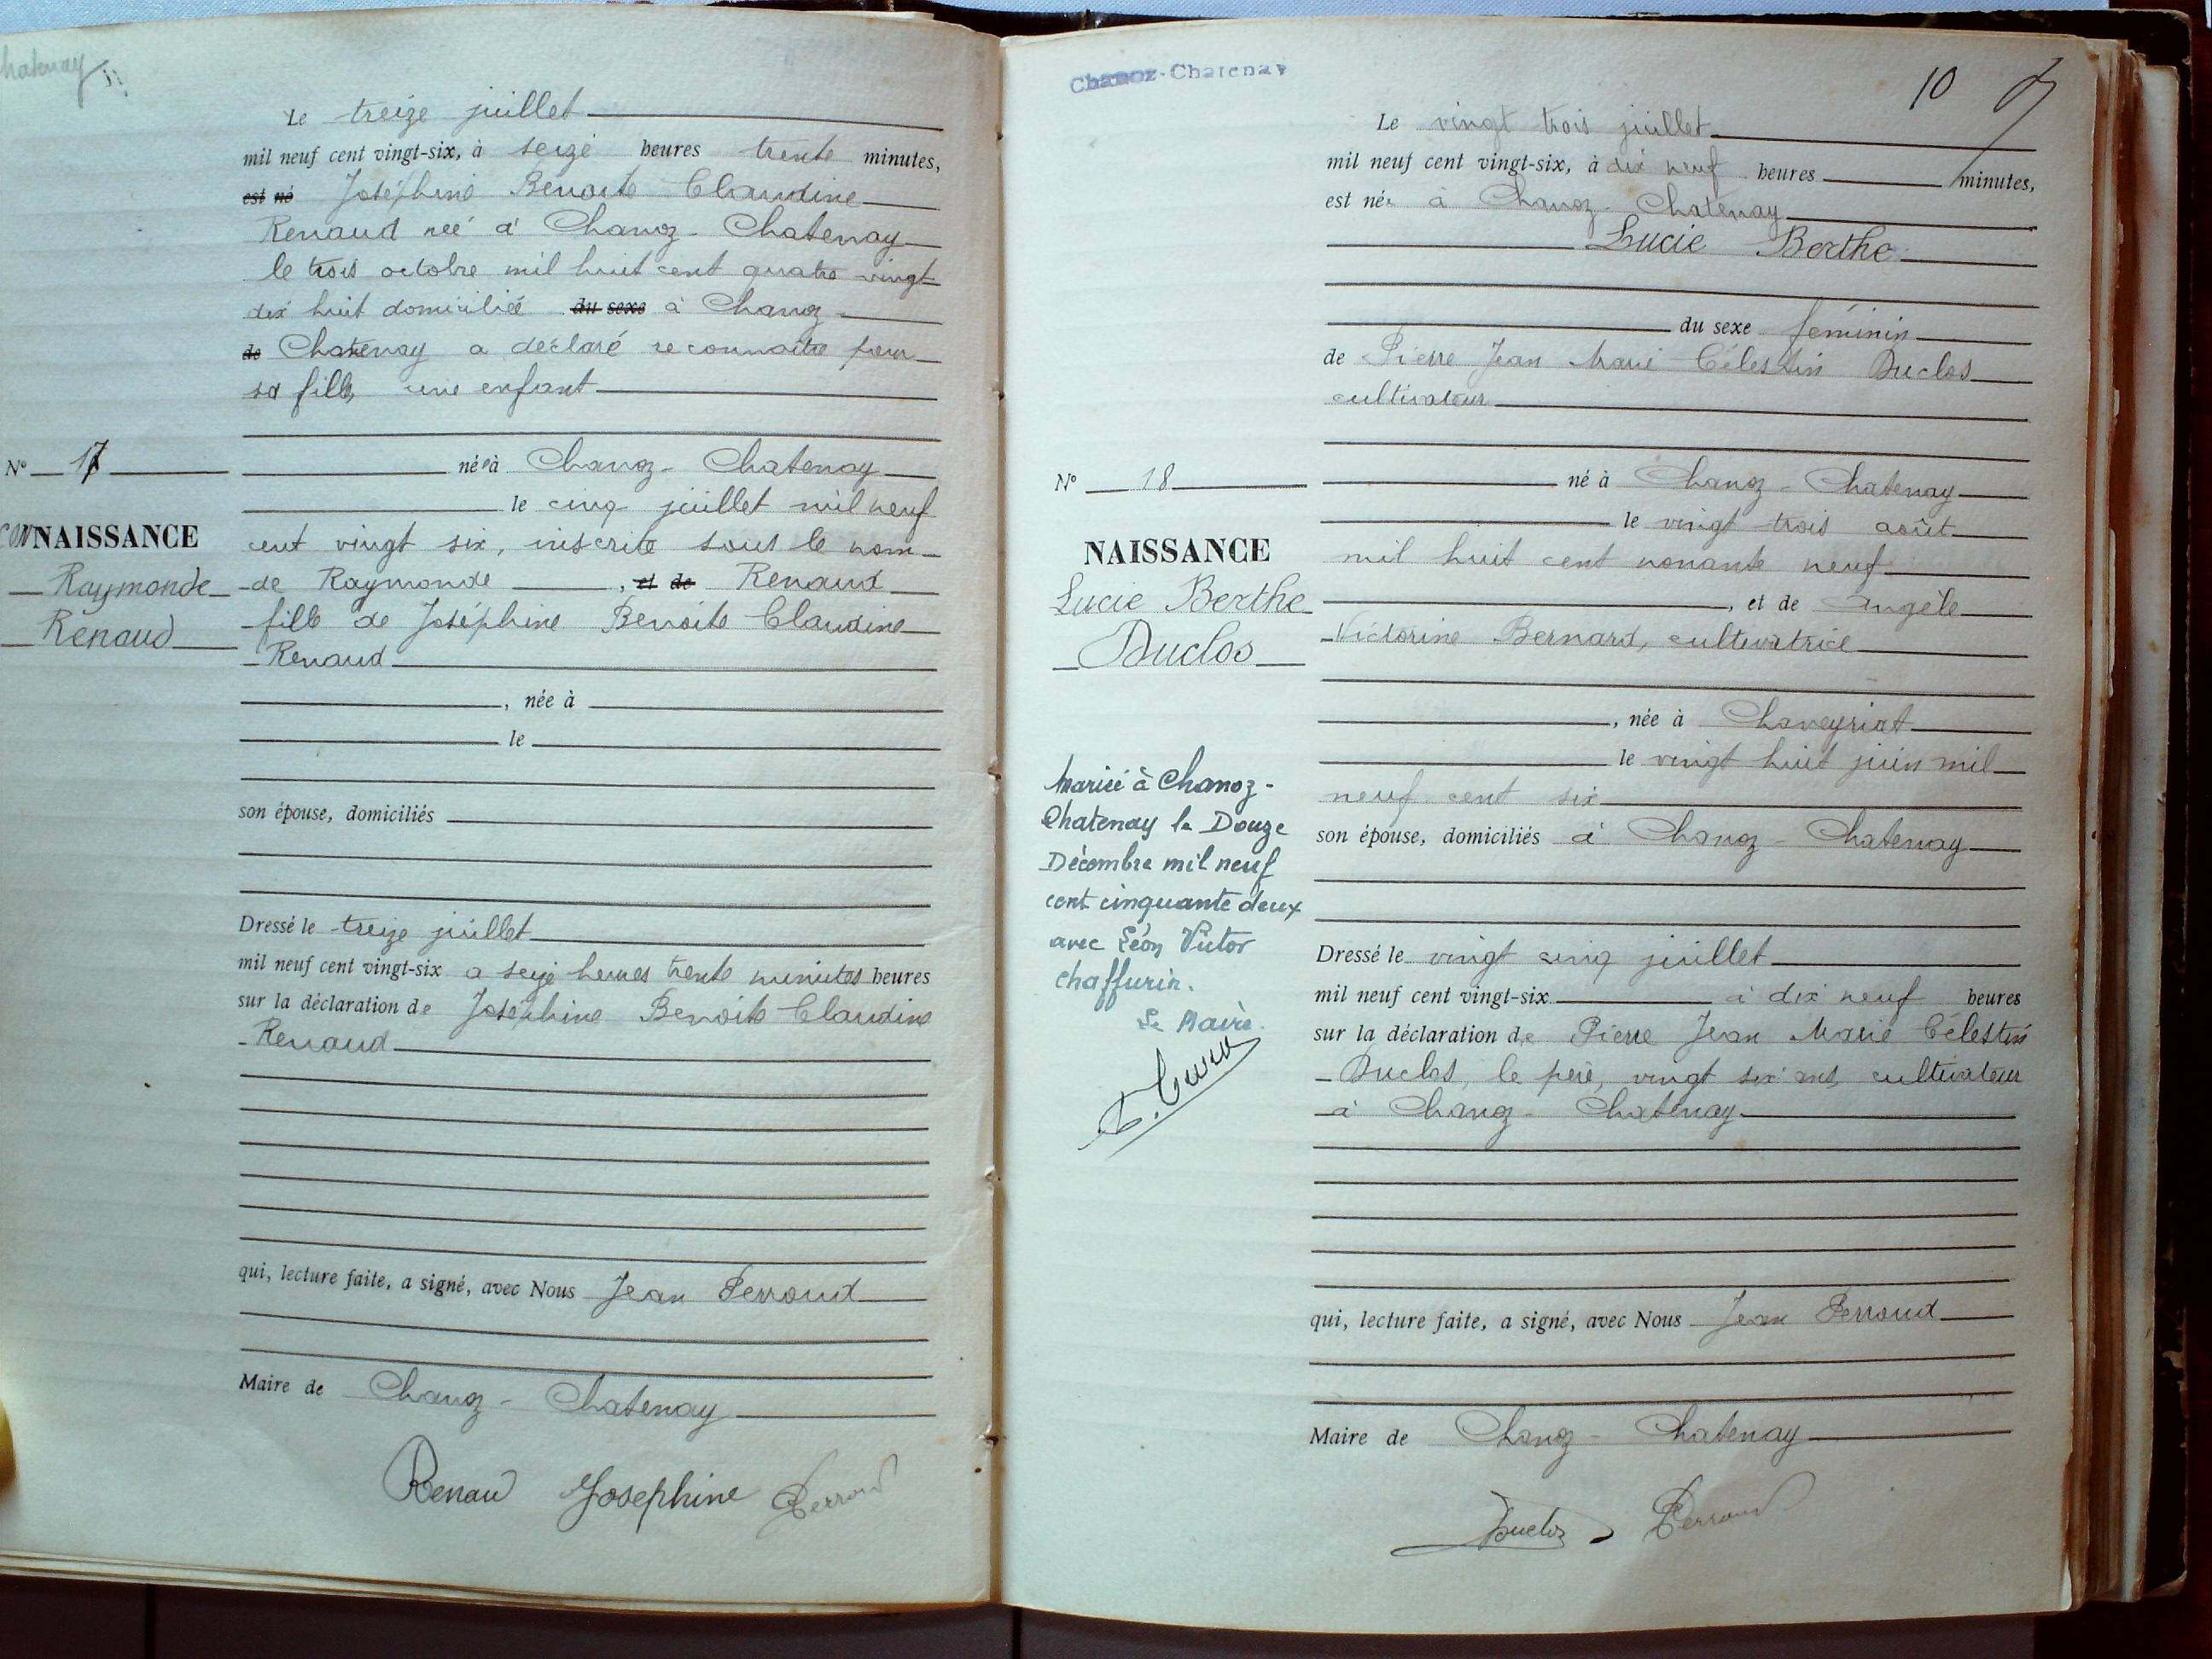 Chatenay
Le treize juillet
mil neuf cent vingt-six, à seize heures trente minutes,
est né Joséphine Benoite Claudine
Renaud née à Chanoz-Chatenay
le trois octobre mil huit cent quatre vingt
dix huit domiciliée du sexe à Chanoz
de Chatenay a déclaré reconnaitre pour
sa fille, une enfant
N° 17
née à Chanoz-Chatenay
le cinq juillet mil neuf
NAISSANCE
cent vingt six, inscrite sous le nom
Raymonde
de Raymonde, et de Renaud
Renaud
fille de Joséphine Benoite Claudine
Renaud
, née à
le
son épouse, domiciliés
Dressé le treize juillet
mil neuf cent vingt-six a seize heures trente minutes heures
sur la déclaration de Joséphine Benoite Claudine
Renaud
qui, lecture faite, a signé, avec Nous Jean Perroud
Maire de Chanoz-Chatenay
Renaud Josephine Perroud
Chanoz-Chatenay
10
Le vingt trois juillet
mil neuf cent vingt-six, à dix neuf heures minutes,
est née à Chanoz-Chatenay
Lucie Berthe
du sexe féminin
de Pierre Jean Marie Célestin Duclos
cultivateur
N° 18
né à Chanoz-Chatenay
le vingt trois août
NAISSANCE
mil huit cent nonante neuf
Lucie Berthe
, et de Angèle
Duclos
Victorine Bernard, cultivatrice
, née à Chaveyriat
le vingt huit juin mil
neuf cent six
son épouse, domiciliés à Chanoz-Chatenay
Mariée à Chanoz-
Chatenay le Douze
Décembre mil neuf
cent cinquante deux
avec Léon Victor
Chaffurin.
Le Maire.
Dressé le vingt cinq juillet
mil neuf cent vingt-six à dix neuf heures
sur la déclaration de Pierre Jean Marie Célestin
Duclos, le père, vingt six ans, cultivateur
à Chanoz-Chatenay
qui, lecture faite, a signé, avec Nous Jean Perroud
Maire de Chanoz-Chatenay
Duclos Perroud